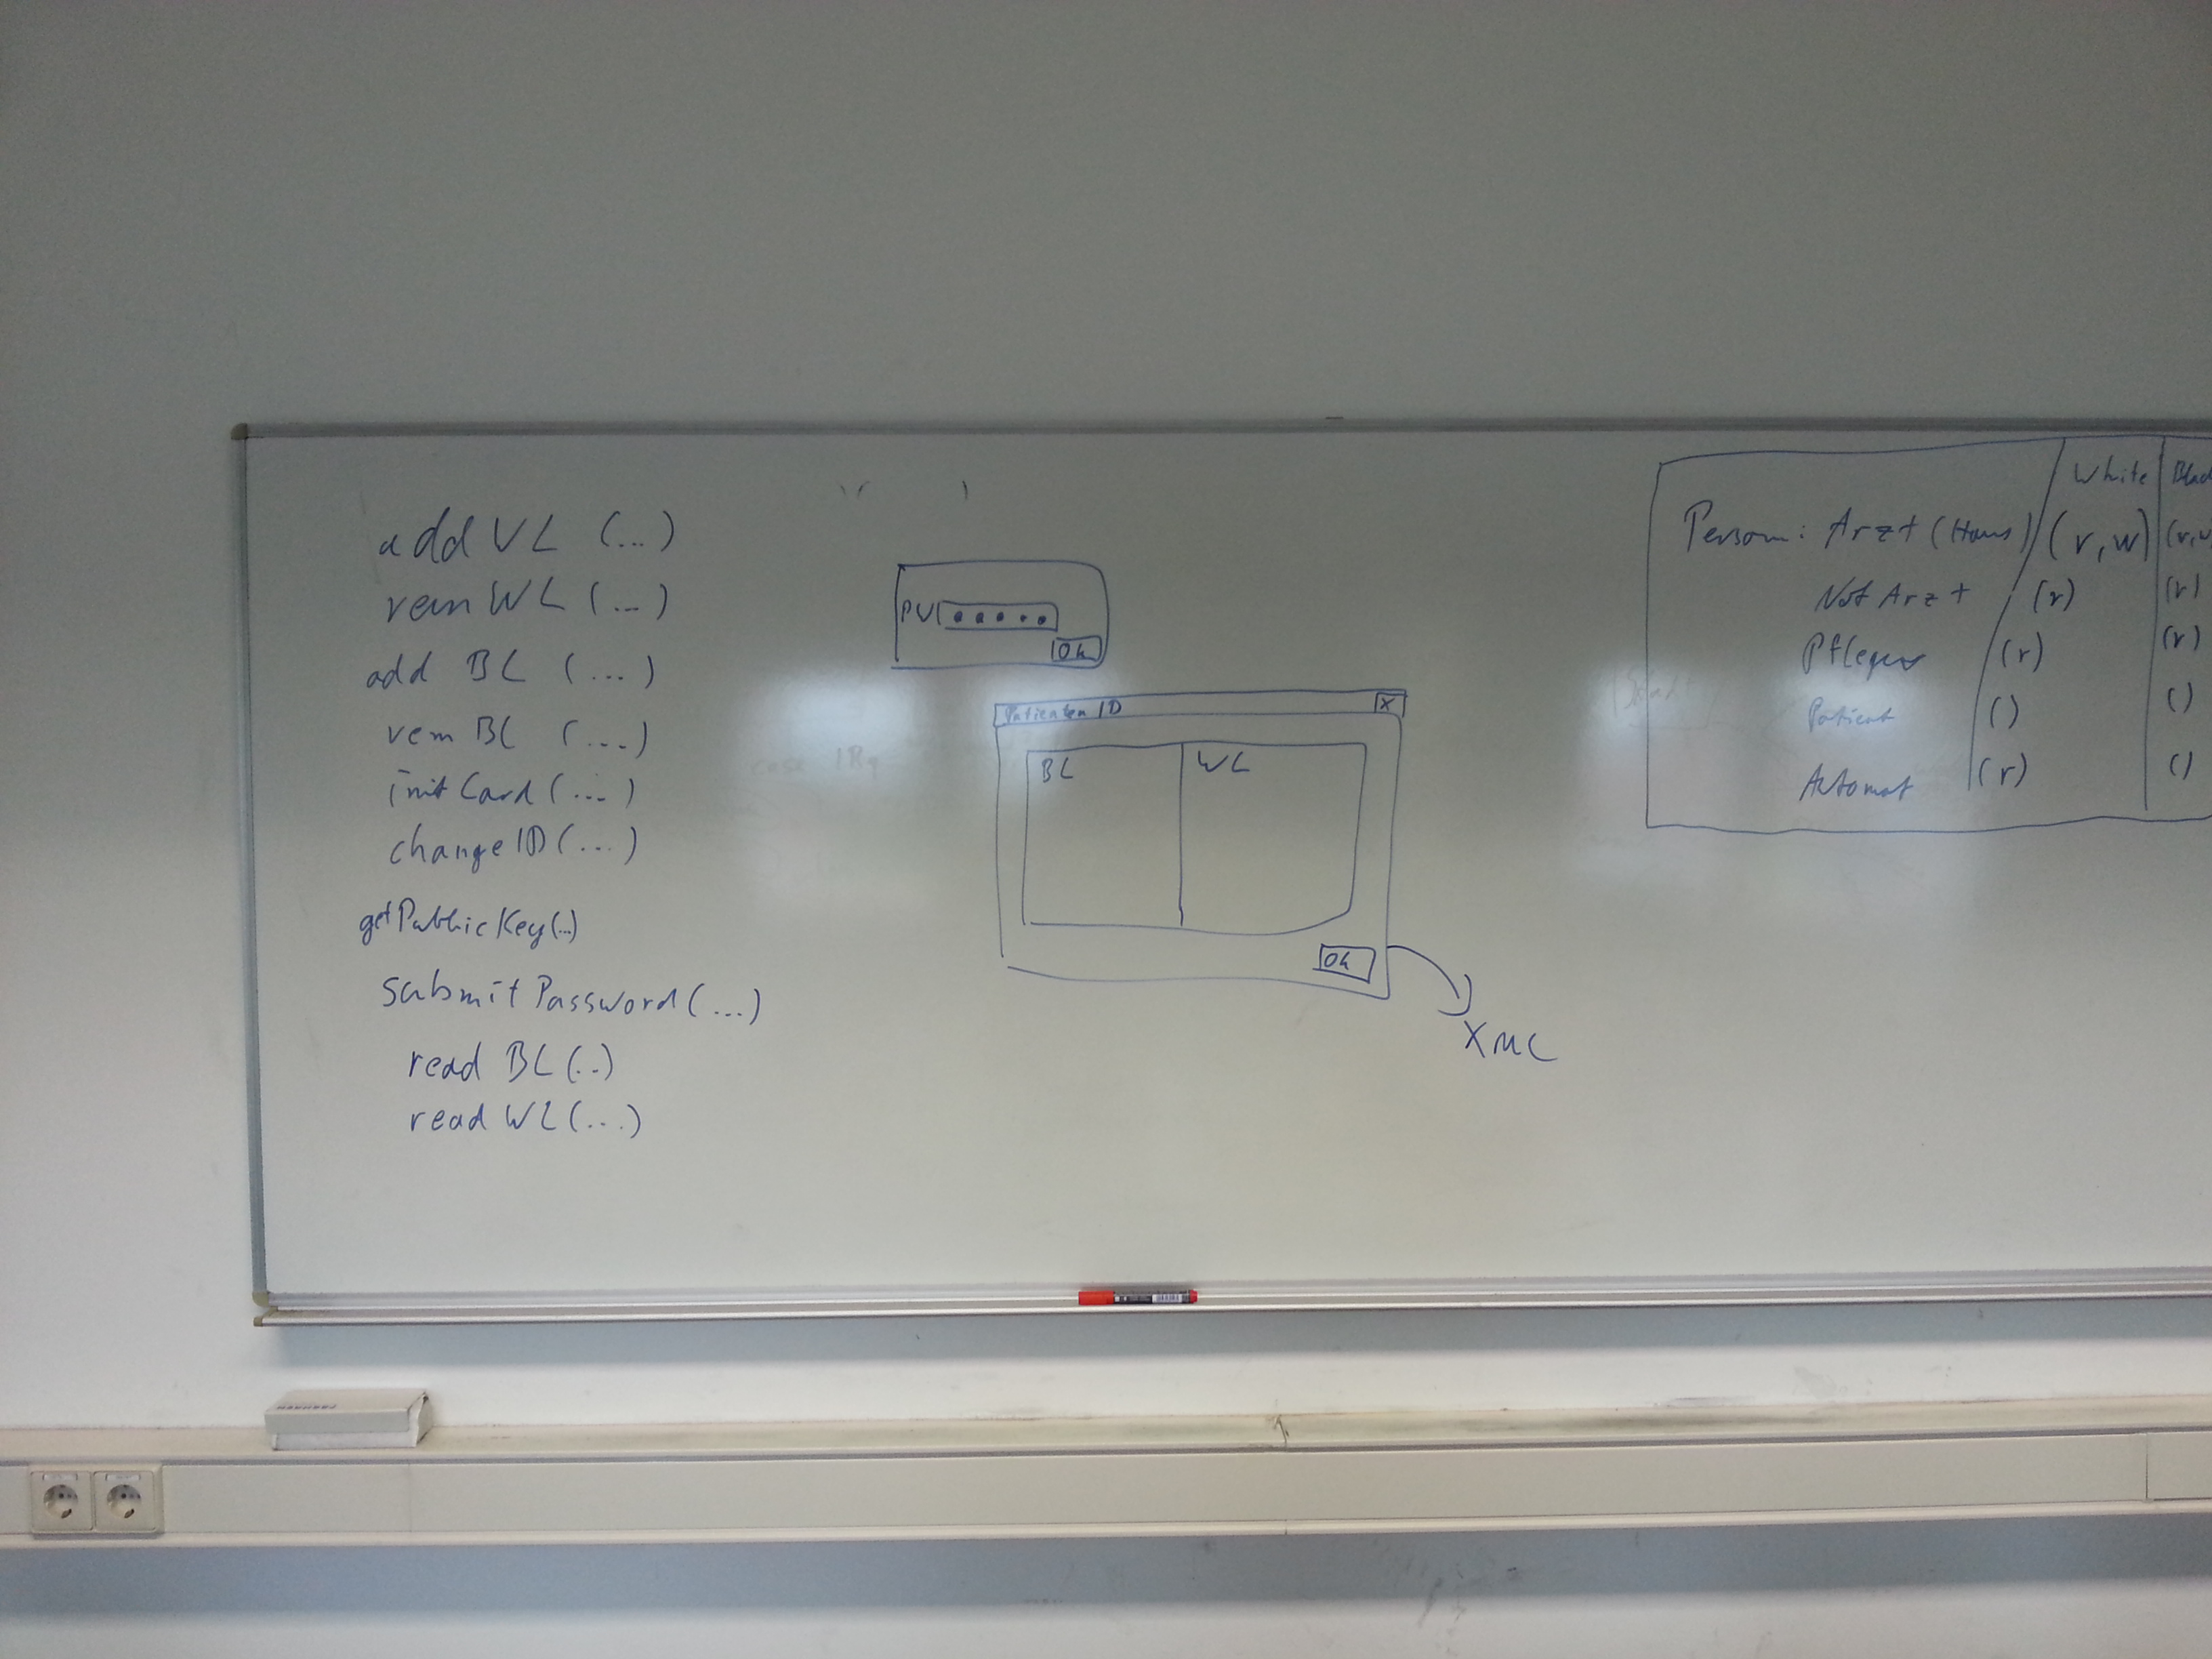 add WL (...)
rem WL (...)
add BL (...)
rem BL (...)
init Card (...)
change ID (...)
getPublicKey(...)
submitPassword(...)
read BL (..)
read WL (...)
PW
Ok
Patienten ID X
BL WL
Ok
XML
White Blac
Person: Arzt (Haus) (r,w) (r,w
Not Arzt (r) (r)
Pfleger (r) (r)
Patient () ()
Automat (r) ()